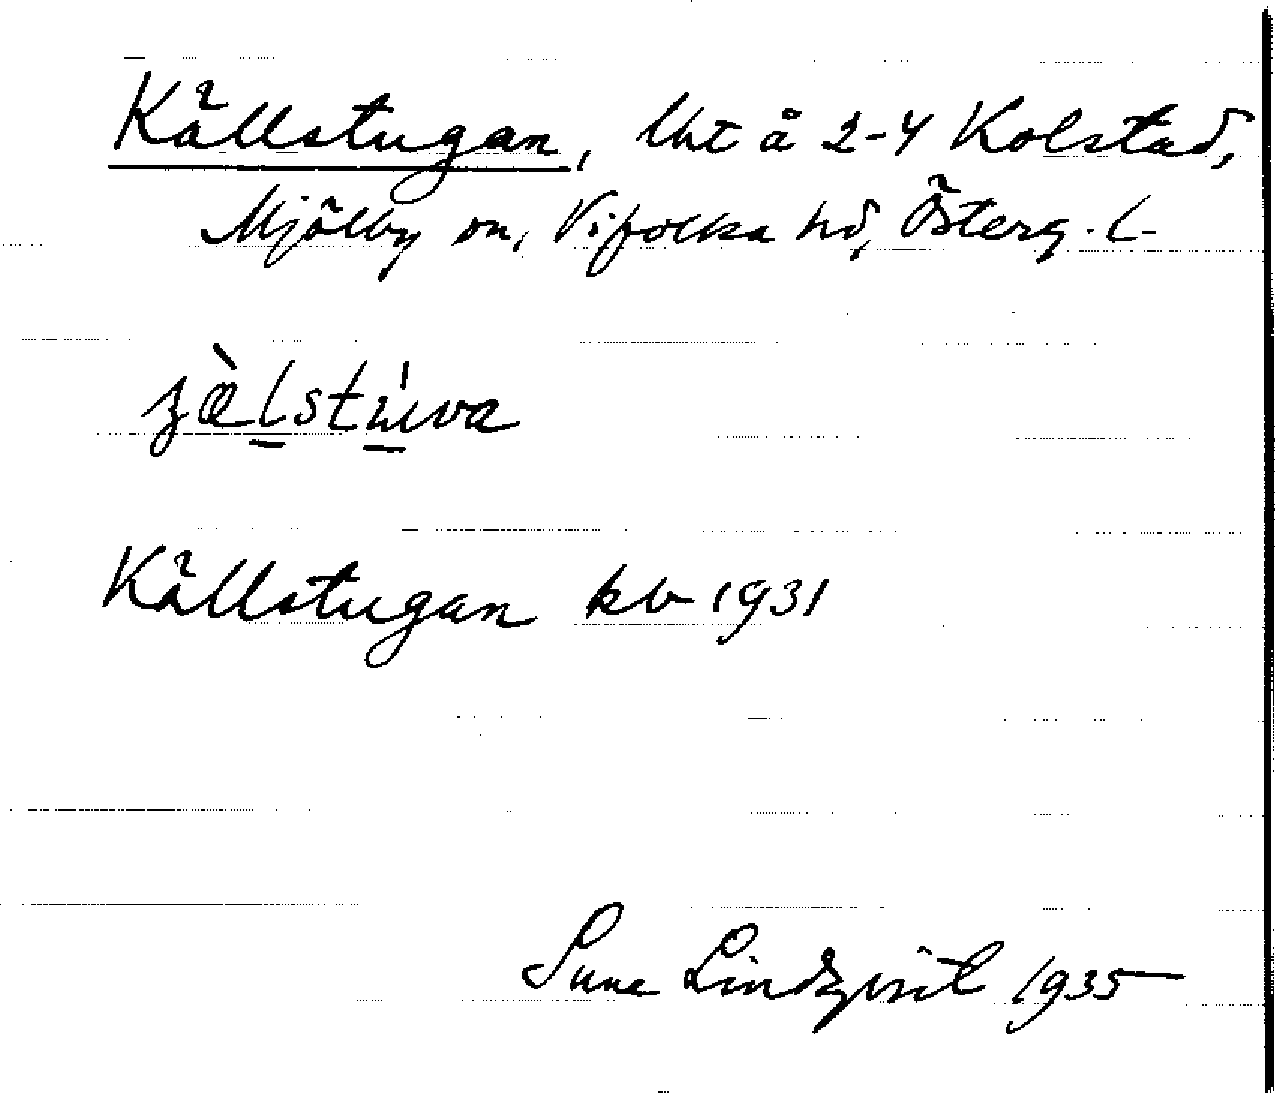 Källstugan, Uht å 2-4 Kolstad,
Mjölby sn, Vifolka hd, Österg. L-
Källstugan kb 1931
Sune Lindqvist 1935